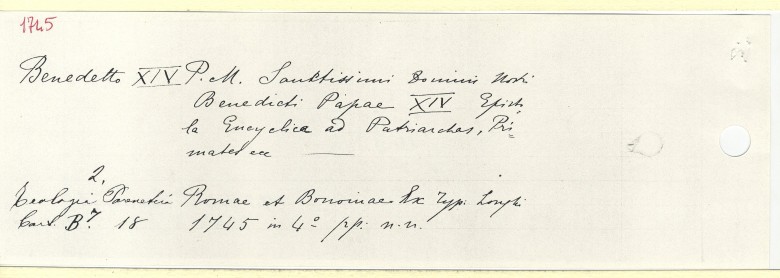 1745
Benedetto XIV P. M. Sanktissimi Domini Nostri
Benedicti Papae XIV Episto
la Encyclica ad Patriarchas, Pri=
mates ecc
2,
Teologia Parenetica Romae et Bononiae Ex Typ. Longhi
Cart. B7. 18 1745 in 4° pp. n. n.